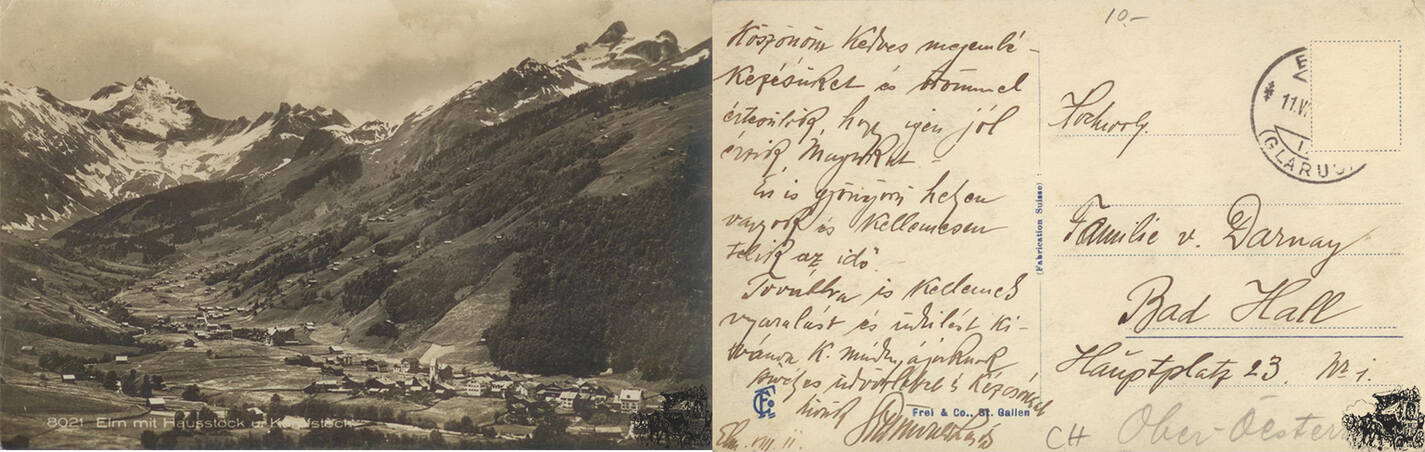 8021 Elm mit Hausstock u. Kärpfstock
10.-
Köszönöm kedves megemlé-
kezésüket és örömmel
értesülök, hogy igen jól
érzik Magukat -
Én is gyönyörű helyen
vagyok és kellemesen
telik az idő.
További is kellemes
nyaralást és üdülést ki-
vánva K. mindnyájuknak
szívélyes üdvözlet s kézcsókot
Elm. VIII. 11.
Frei & Co., St. Gallen
(Fabrication Suisse)
11.V
(GLARUS)
Hochwolg.
Familie v. Darnay
Bad Hall
Hauptplatz 23. Nr 1.
CH Ober-Österr